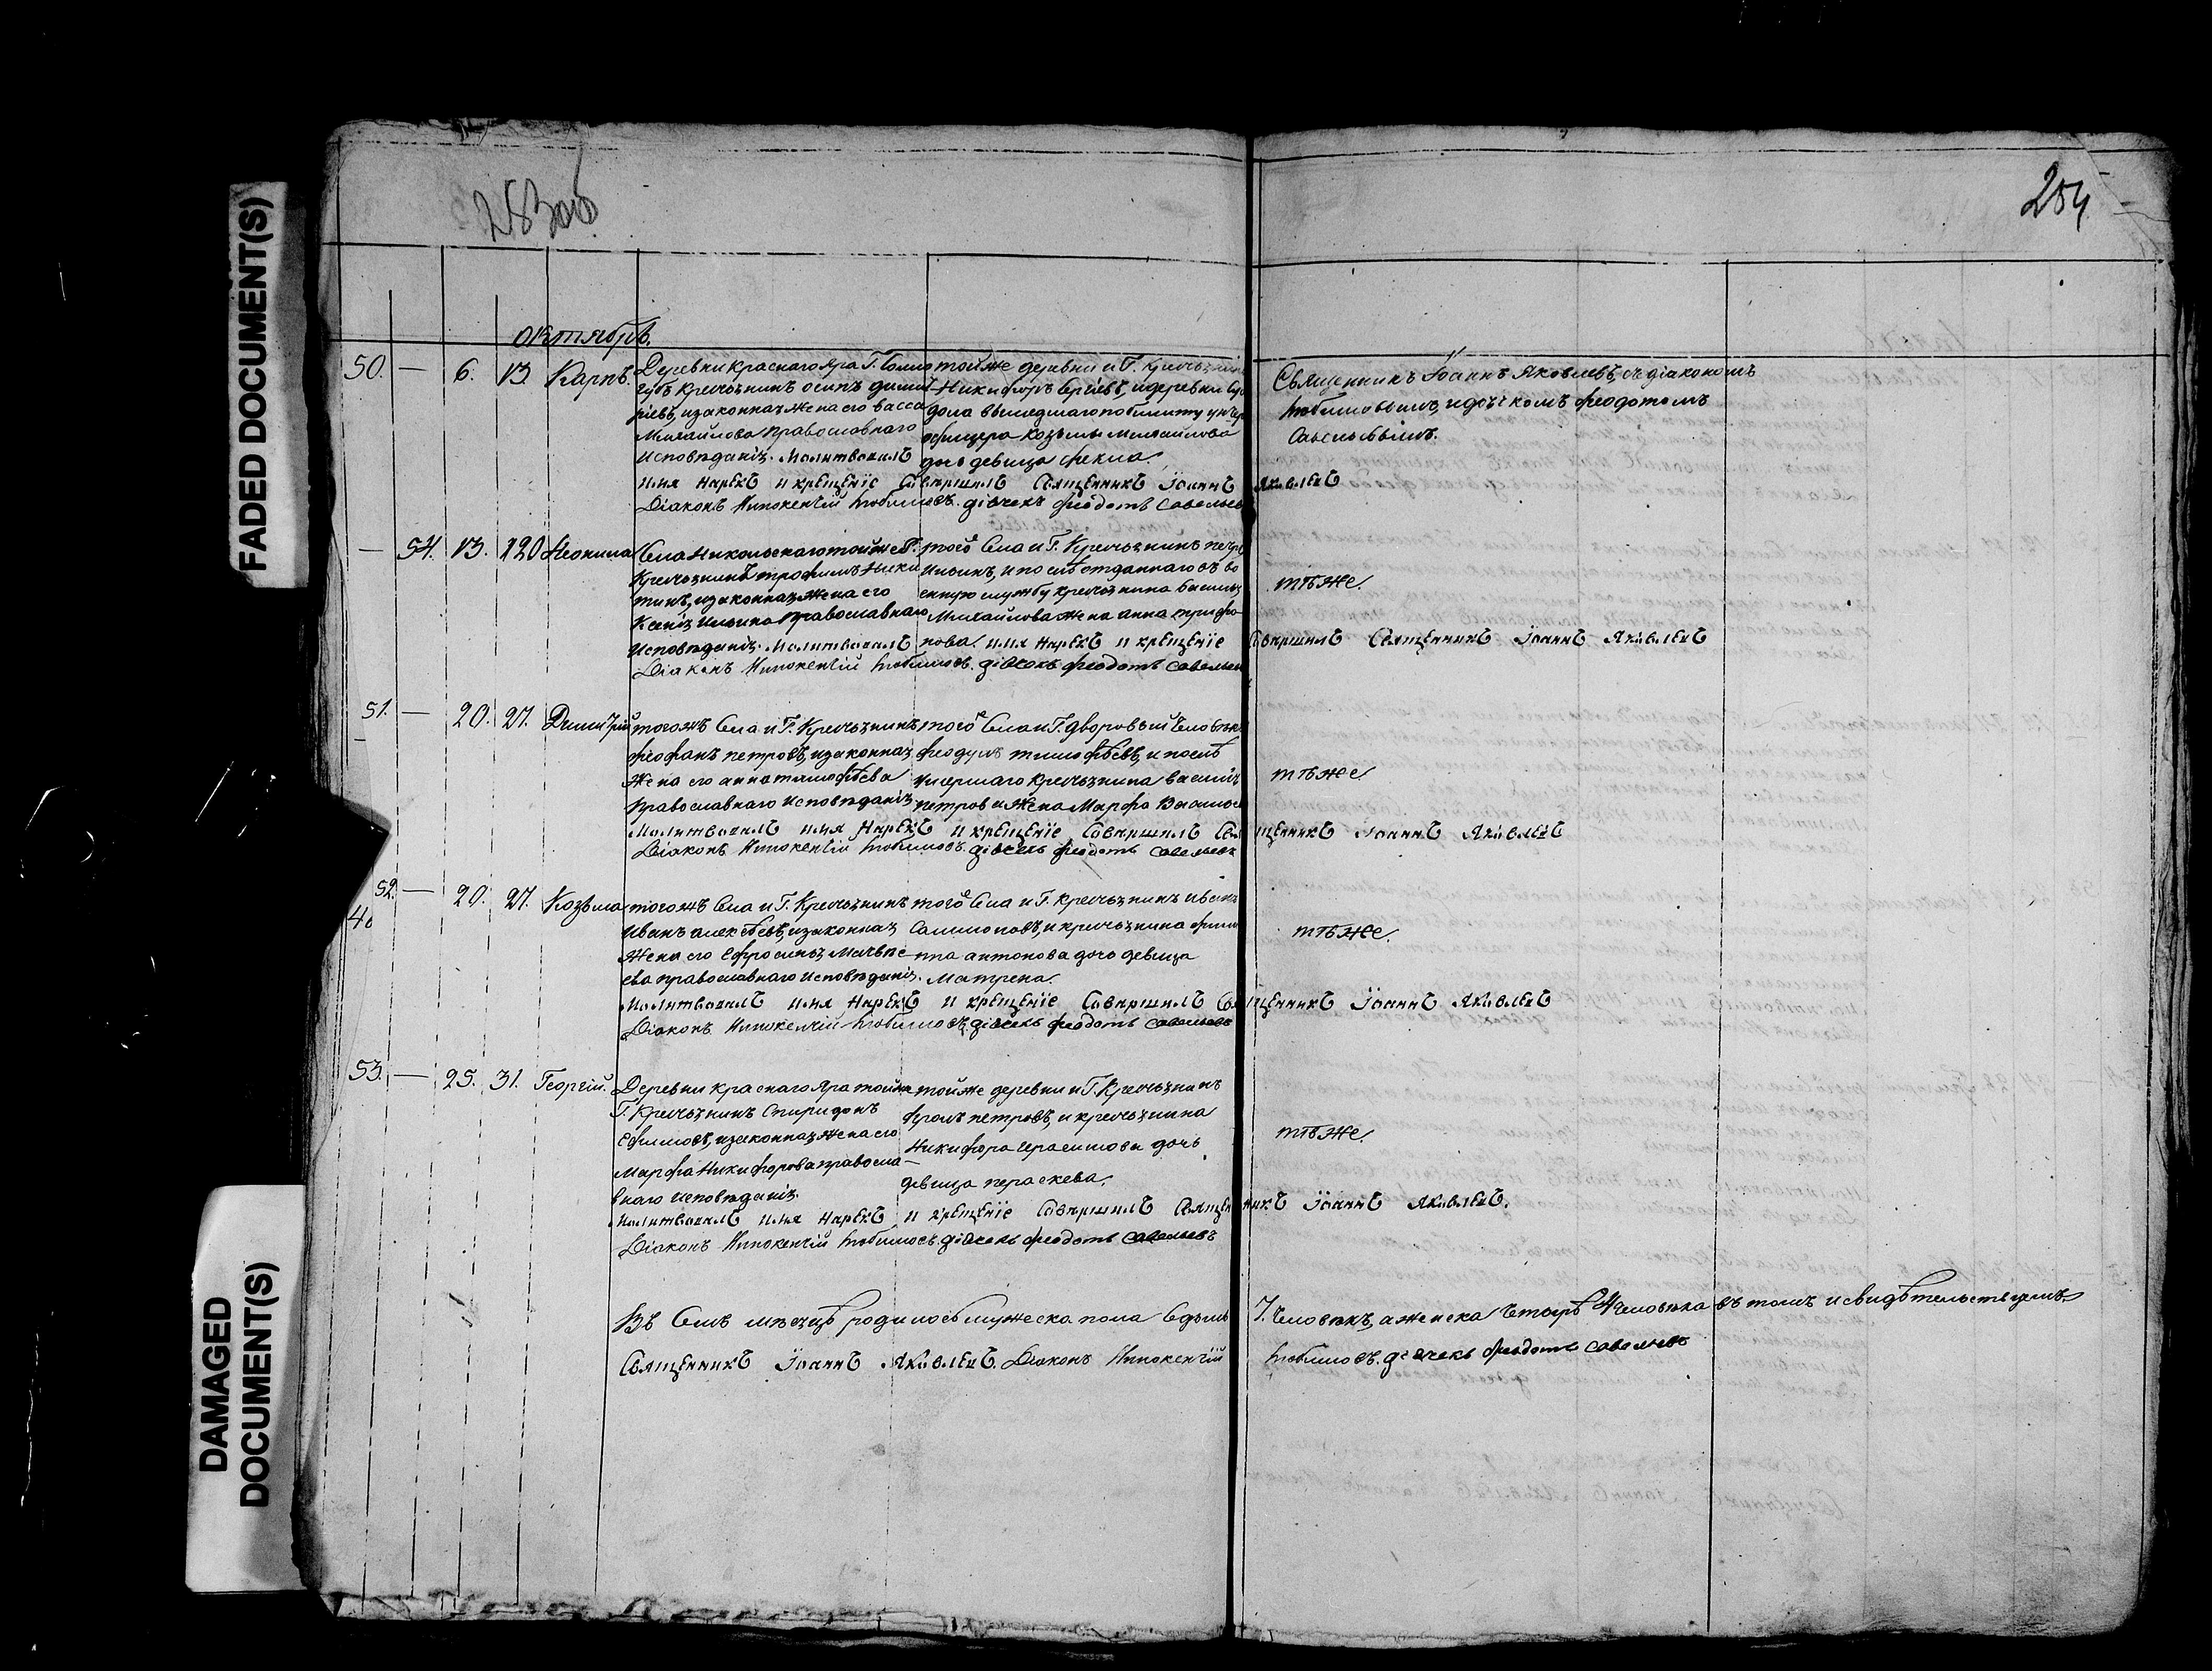 FADED DOCUMENT(S)
DAMAGED
DOCUMENT(S)
283об
284
октябрь.
50. — 6. 13 Карпъ.
Деревни Краснаго Яра Г. Голио
губъ крестьянинъ осипъ дими
ріевъ, изаконная жена его васса
Михайлова православнаго
исповѣданія. Молитвовалъ
тойже деревни и Г. крестьянинъ
Никифоръ Сергіевъ, идеревни
дола вышедшаго побилиту унтер
офицера козьмы Михаилова
дочь девица Фекла.
Священникъ Іоаннъ Яковлевъ, съ діакономъ
Любимовымъ, идьячкомъ феодотомъ
Савельевымъ.
имя нарекъ и крещеніе совершилъ Священникъ Іоаннъ Яковлевъ
Діаконъ Инокентій Любимовъ. дьячекъ феодотъ савельевъ
— 54. 13. 20 Неонила
Села Никольскаго тойже Г.
Крестьянинъ трофимъ Ники
тинъ, изаконная жена его
Ксенія Ильина православнаго
исповѣданія. Молитвовалъ
того Села и Г. Крестьянинъ петръ
Ильинъ, и послѣ отданнаго въ во
енную службу крестьянина василья
Михайлова жена анна трифо
нова. имя нарекъ и крещеніе совершилъ Священникъ Іоаннъ Яковлевъ
тѣже.
Діаконъ Инокентій Любимовъ. дьячокъ феодотъ савельевъ
51. — 20. 27. Димитрій
тогожъ Села и Г. Крестьянинъ
феофанъ петровъ, изаконная
жена его анна тимофѣева
православнаго исповѣданія
того Села и Г. дворовый человѣкъ
феодулъ тимофѣевъ, и послѣ
умершаго крестьянина василія
петрова жена Марфа Васильева
тѣже.
Молитвовалъ имя нарекъ и крещеніе совершилъ Священникъ Іоаннъ Яковлевъ
Діаконъ Инокентій Любимовъ. дьячекъ феодотъ савельевъ
52. — 20. 27. Козьма
40
тогожъ Села и Г. Крестьянинъ
Иванъ алексѣевъ, изаконная
жена его Ефросинья Матвѣе
ева православнаго исповѣданія.
того Села и Г. крестьянинъ иванъ
Самсоновъ, и крестьянина фили
ппа антонова дочь девица
Матрена.
тѣже.
Молитвовалъ имя нарекъ и крещеніе совершилъ Священникъ Іоаннъ Яковлевъ
Діаконъ Инокентій Любимовъ дьячекъ феодотъ савельевъ
53. — 25. 31. Георгій.
Деревни краснаго Яра тойже
Г. Крестьянинъ Спиридонъ
Ефимовъ, изаконная жена его
Марфа Никифорова правосла
внаго исповѣданія.
тойже деревни и Г. Крестьянинъ
фролъ петровъ, и крестьянина
Никифора Герасимова дочь
девица параскева.
тѣже.
Молитвовалъ имя нарекъ и крещеніе совершилъ Священникъ Іоаннъ Яковлевъ.
Діаконъ Инокентій Любимовъ дьячекъ феодотъ савельевъ
Въ Семъ мѣсяцѣ родилось мужеска пола Седмь 7. человѣкъ, а женска четыре 4 человѣка въ томъ и свидѣтельствуемъ
Священникъ Іоаннъ Яковлевъ. Діаконъ Инокентій Любимовъ. дьячекъ феодотъ савельевъ